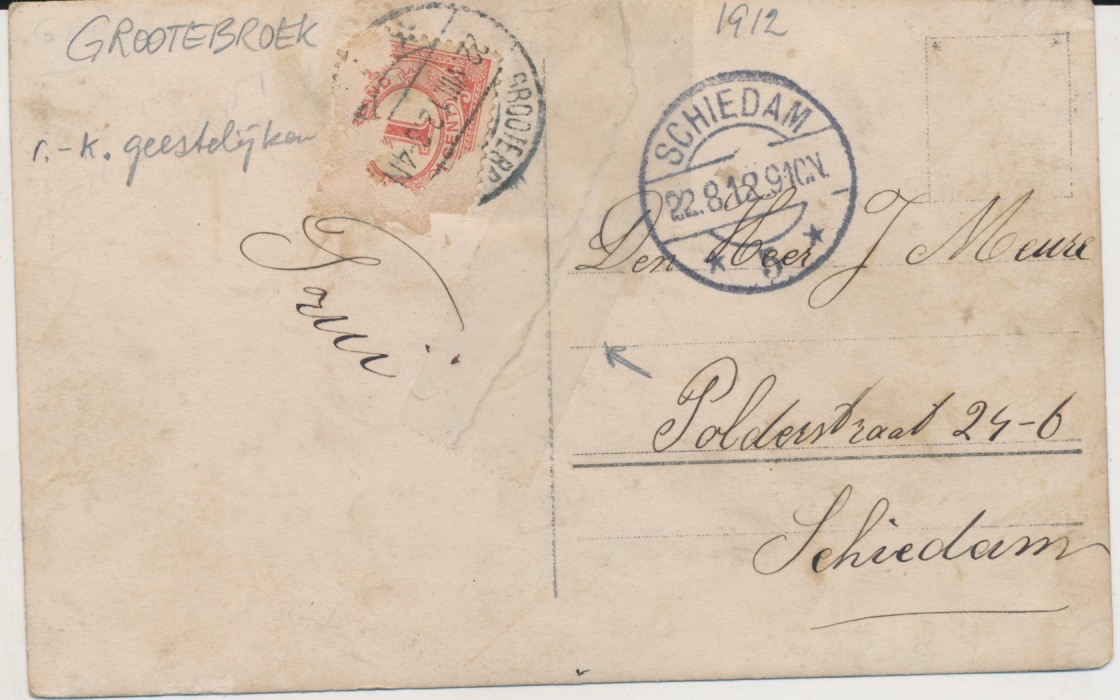 GROOTEBROEK
1912
r.-k. geestelijken
1
CENT
GROOTEBR
SCHIEDAM
22.8.12.9-10N.
5
Den Heer J Meure
Polderstraat 24-6
Schiedam